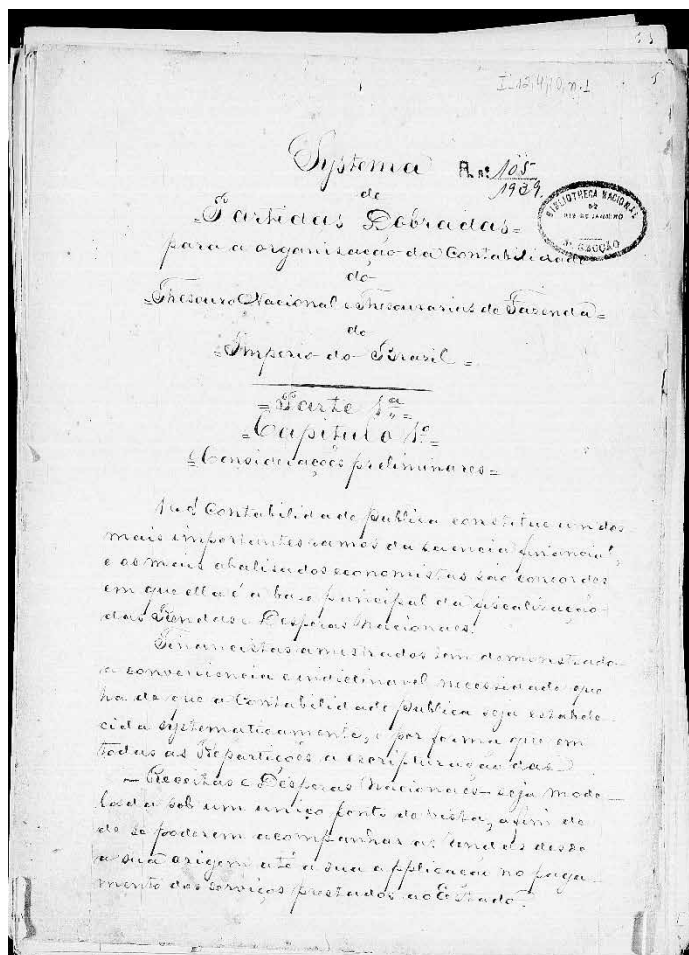 I-12,4,10,n.1
Systema
R. nº 105
1929.
de
BIBLIOTHECA NACIONAL
DO
RIO DE JANEIRO
SECÇÃO
=Partidas Dobradas=
para a organisação da Contabilidade
do
=Thesouro Nacional e Thesourarias de Fazenda=
do
=Imperio do Brasil=
=Parte 1ª=
=Capitulo 1º=
=Considerações preliminares=
Contabilidade publica constitue um dos
mais importantes ramos da sciencia financial,
e os mais abalisados economistas são concordes
em que ella é a base principal da fiscalização
das Rendas e Despezas Nacionaes.
Financistas amestrados tem demonstrado
a conveniencia e indeclinavel necessidade que
ha de que a Contabilidade publica seja estabele-
cida systematicamente, e por forma que em
todas as Repartições a escripturação das
— Receitas e Despezas Nacionaes — seja mode-
lada sob um unico ponto de vista, afim de
de se poderem acompanhar as rendas desde
a sua origem até a sua applicação no paga-
mento dos serviços prestados ao Estado.